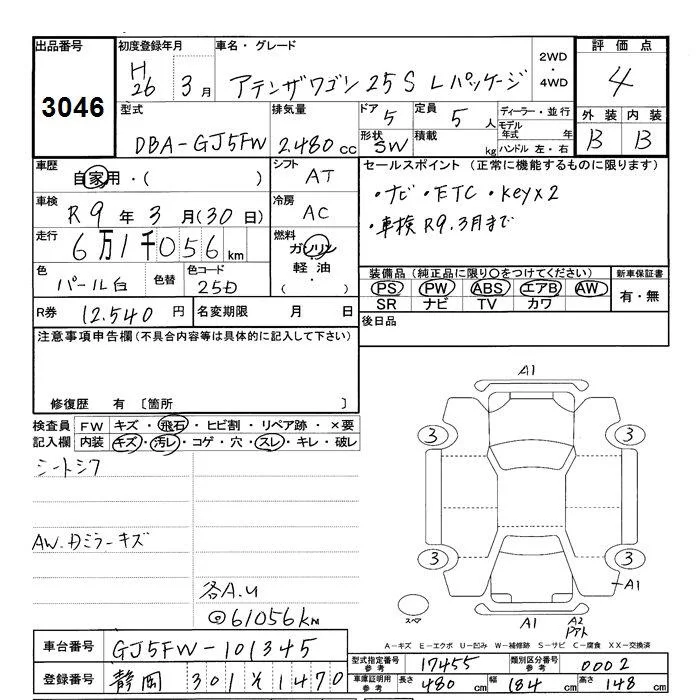 出品番号 初度登録年月 車名・グレード 2WD・4WD 評価点
3046 H26 3月 アテンザワゴン25S Lパッケージ 4
型式 排気量 ドア 5 定員 5人 ディーラー・並行 外装 内装
DBA-GJ5FW 2.480cc 形状 SW 積載 kg モデル年式 年 ハンドル 左・右 B B
車歴 自家用・( ) シフト AT セールスポイント (正常に機能するものに限ります)
車検 R9年3月(30日) 冷房 AC ・ナビ・ETC・Key×2
走行 6万1千056km 燃料 ガソリン・軽油・( ) ・車検R9.3月まで
色 パール白 色替 色コード 25D 装備品(純正品に限り〇をつけてください) 新車保証書
PS PW ABS エアB AW 有・無
SR ナビ TV カワ
R券 12.540円 名変期限 月 日 後日品
注意事項申告欄(不具合内容等は具体的に記入して下さい)
修復歴 有 〔箇所 〕
検査員記入欄 FW キズ・飛石・ヒビ割・リペア跡・×要
内装 キズ・汚レ・コゲ・穴・スレ・キレ・破レ
シートシワ
AW.Dミラーキズ
各A.U
@61056km
A1
3 3
3 3
A1
スペア A1 A2
A-キズ E-エクボ U-凹み W-補修跡 S-サビ C-腐食 XX-交換済
車台番号 GJ5FW-101345
型式指定番号 参考 17455 類別区分番号 参考 0002
登録番号 静岡 301 そ 1470
車庫証明用 参考 長さ 480cm 幅 184cm 高さ 148cm